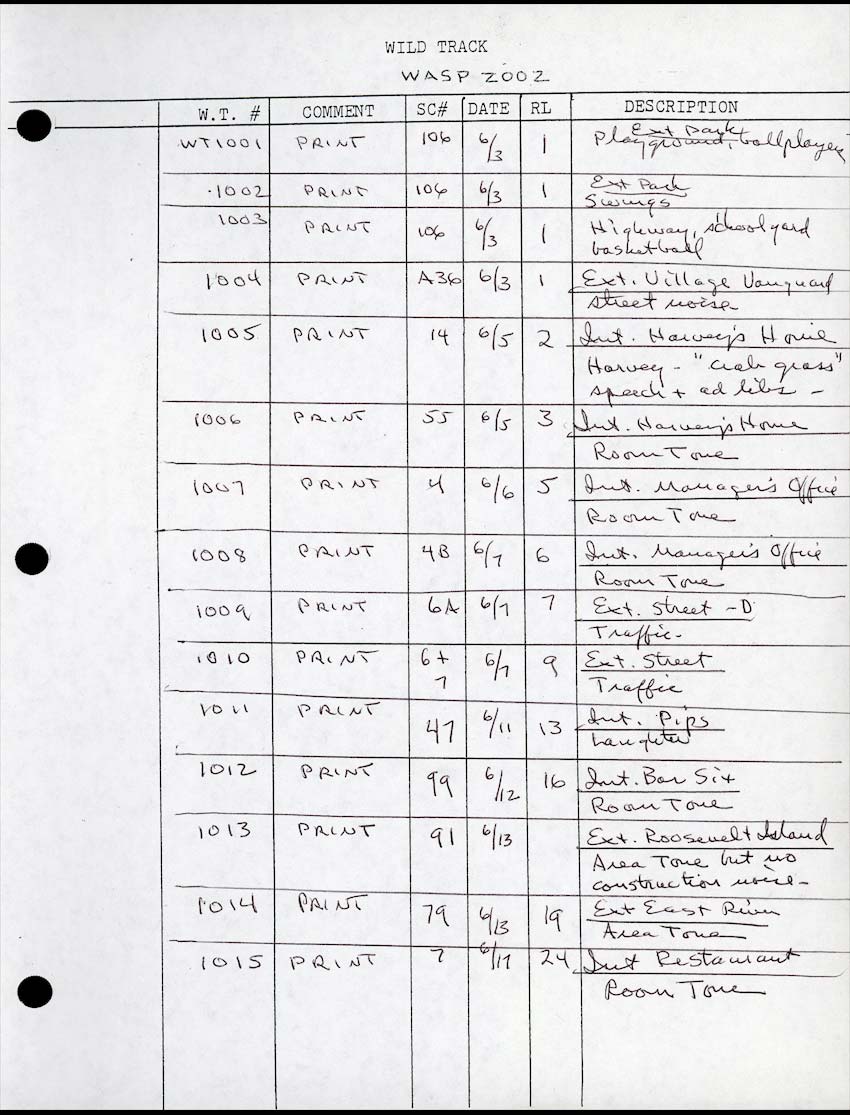 WILD TRACK
WASP 2002
W.T. # COMMENT SC# DATE RL DESCRIPTION
WT1001 PRINT 106 6/3 1 Ext Park
Playground, ballplayers
1002 PRINT 106 6/3 1 Ext Park
Swings
1003 PRINT 106 6/3 1 Highway, schoolyard
basketball
1004 PRINT A36 6/3 1 Ext. Village Vanguard
street noise
1005 PRINT 14 6/5 2 Int. Harvey's Home
Harvey - "crab grass"
speech + ad libs -
1006 PRINT 55 6/5 3 Int. Harvey's Home
Room Tone
1007 PRINT 4 6/6 5 Int. Manager's Office
Room Tone
1008 PRINT 4B 6/7 6 Int. Manager's Office
Room Tone
1009 PRINT 6A 6/7 7 Ext. Street -D
Traffic-
1010 PRINT 6+ 6/7 9 Ext. Street
7 Traffic
1011 PRINT 47 6/11 13 Int. Pips
Laughter
1012 PRINT 99 6/12 16 Int. Bar Six
Room Tone
1013 PRINT 91 6/13 Ext. Roosevelt Island
Area Tone but no
construction noise-
1014 PRINT 79 6/13 19 Ext East River
Area Tone
1015 PRINT 7 6/17 24 Int Restaurant
Room Tone